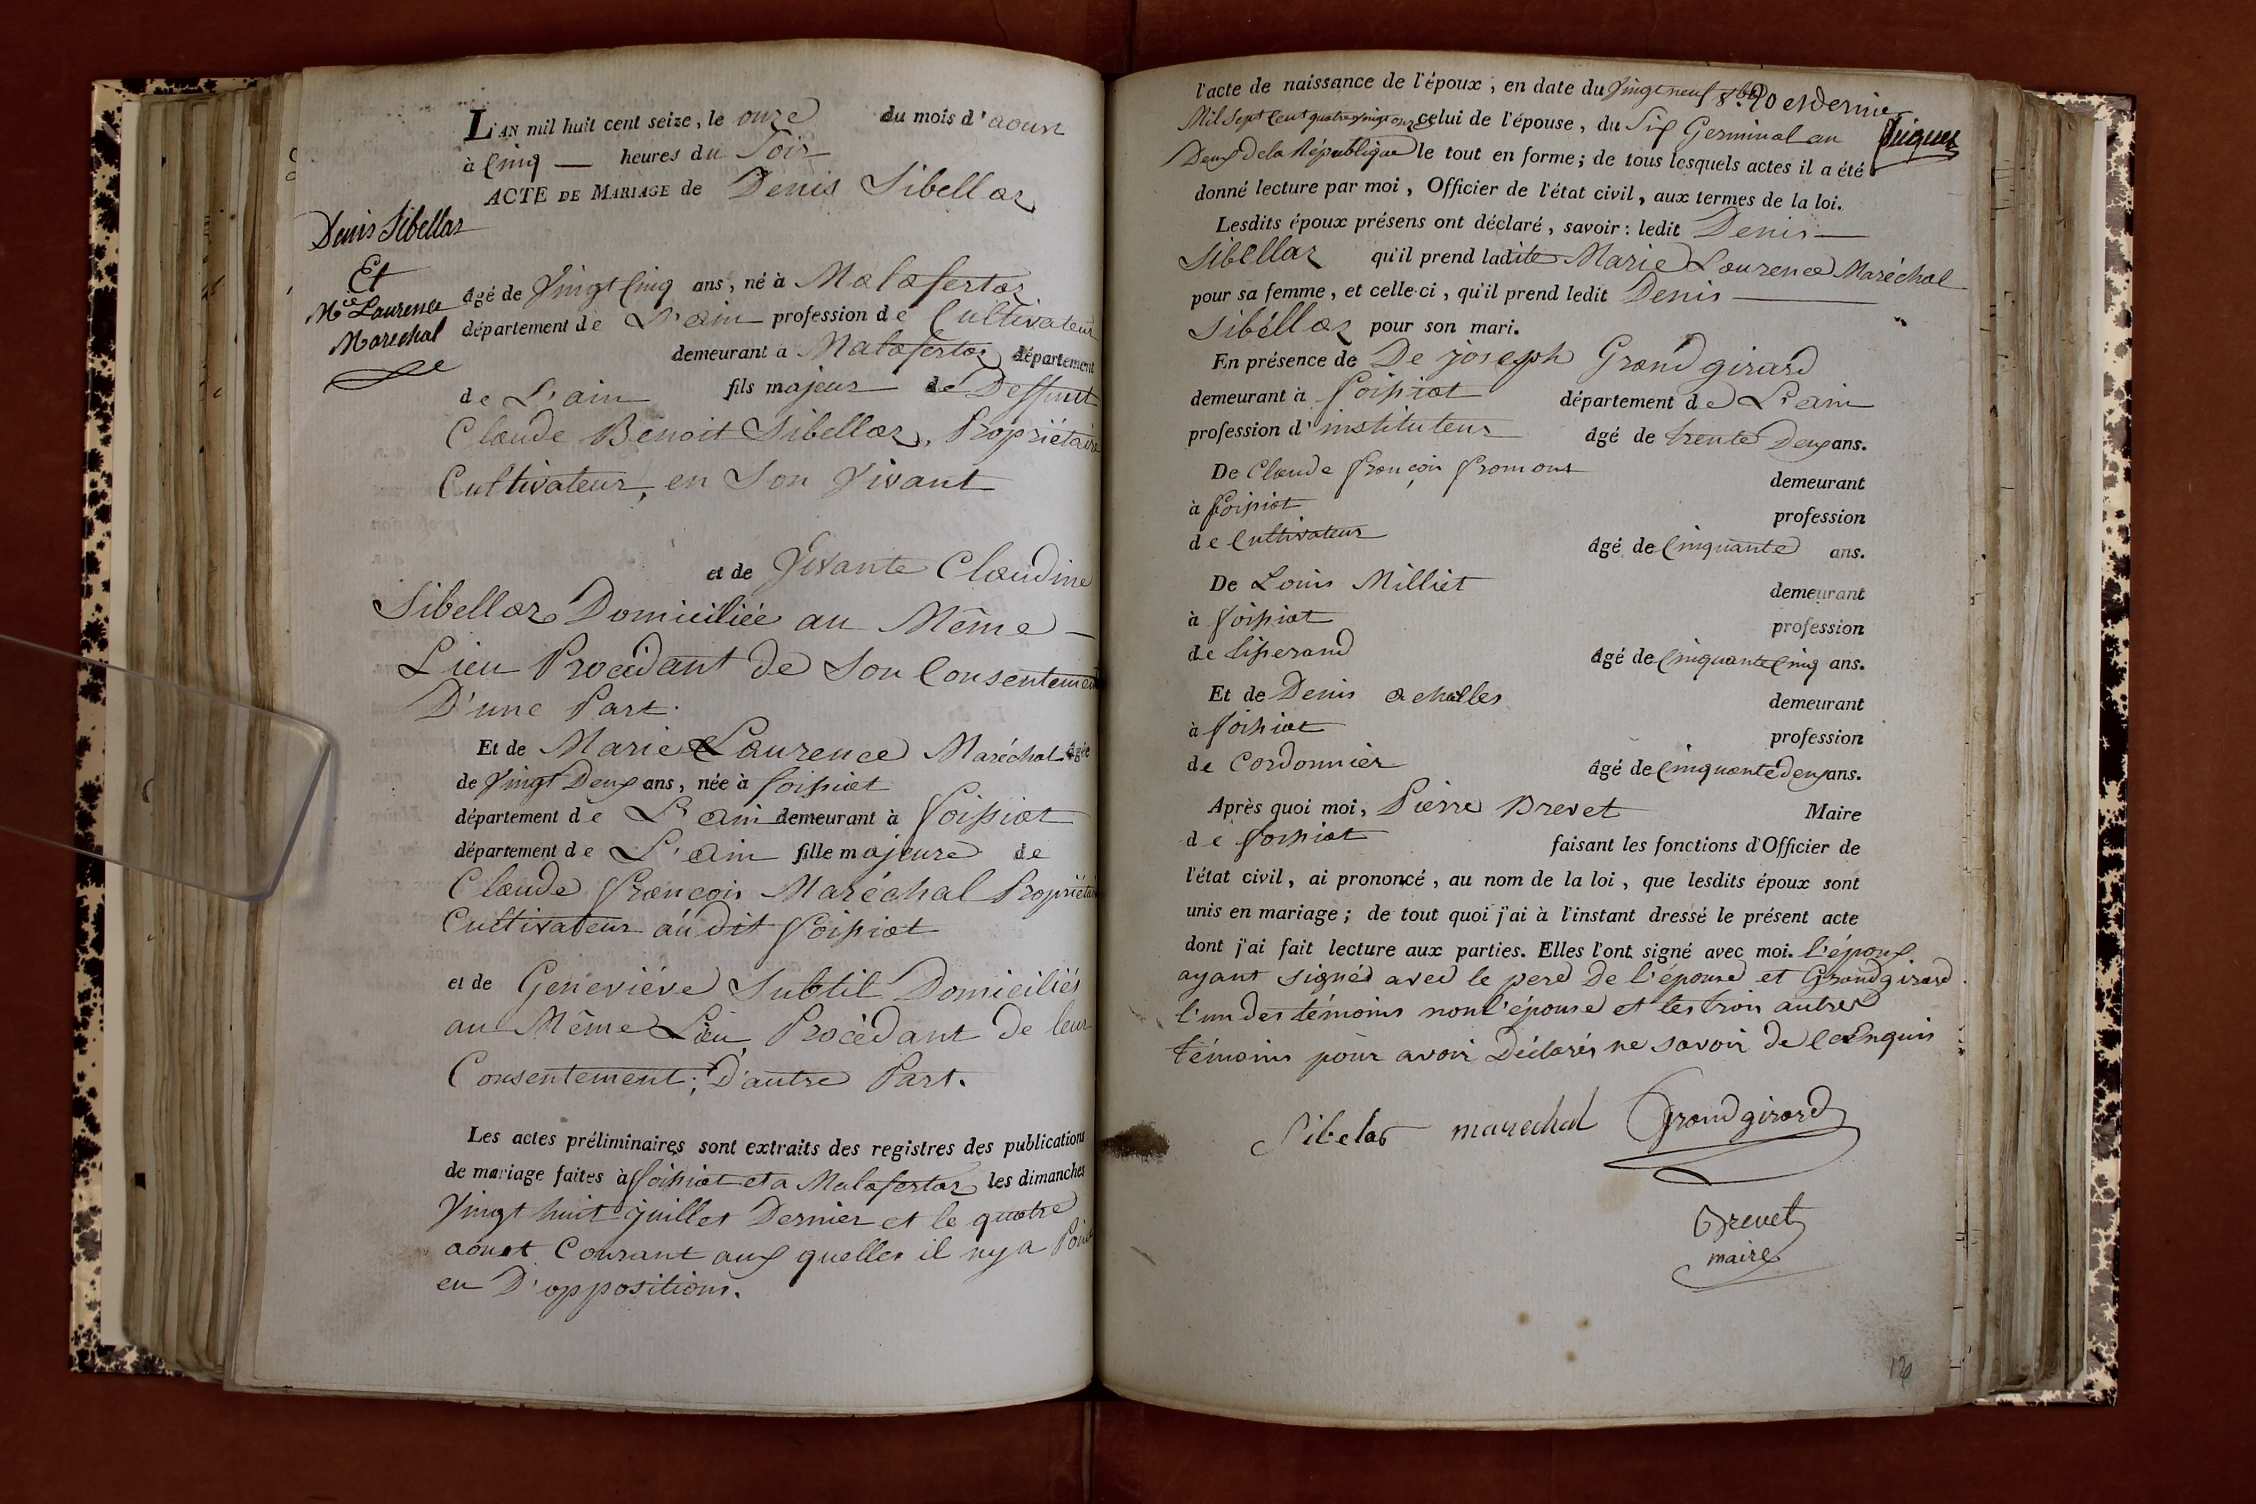 L'AN mil huit cent seize, le onze du mois d'aoust
à Cinq — heures du Soir
ACTE DE MARIAGE de Denis Sibellas
Denis Sibellas
Et
Mie Laurence
Maréchal
âgé de Vingt Cinq ans, né à Malafertas
département de L'ain profession de Cultivateur
demeurant à Malafertas département
de L'ain fils majeur de Deffunt
Claude Benoit Sibellas, Propriétaire
Cultivateur, en Son Vivant
et de Vivante Claudine
Sibellas Domiciliée au Même —
Lieu Procédant de Son Consentement
D'une Part.
Et de Marie Laurence Maréchal âgée
de Vingt Deux ans, née à Foissiat
département de L'ain demeurant à Foissiat
département de L'ain fille majeure de
Claude François Maréchal Propriétaire
Cultivateur audit Foissiat
et de Geneviéve Subtil Domiciliés
au Même Lieu Procédant de leur
Consentement; D'autre Part.
Les actes préliminaires sont extraits des registres des publications
de mariage faites à Foissiat et a Malafertas les dimanches
Vingt huit juillet Dernier et le quatre
aoust Courant aux quelles il ny a Point
eu D'oppositions.
l'acte de naissance de l'époux, en date du Vingt neuf 8bre
20 et dernier
Mil Sept Cent quatre Vingt onze celui de l'épouse, du Six Germinal an
Deux De la République le tout en forme; de tous lesquels actes il a été
donné lecture par moi, Officier de l'état civil, aux termes de la loi.
Lesdits époux présens ont déclaré, savoir: ledit Denis —
Sibellas qu'il prend ladite Marie Laurence Maréchal
pour sa femme, et celle-ci, qu'il prend ledit Denis —
Sibéllas pour son mari.
En présence de De joseph Grand girard
demeurant à Foissiat département de L'ain
profession d'instituteur âgé de trente Deux ans.
De Claude François Fromont demeurant
à Foissiat profession
de Cultivateur âgé de Cinquante ans.
De Louis Milliet demeurant
à Foissiat profession
de tisserand âgé de Cinquante Cinq ans.
Et de Denis achalles demeurant
à Foissiat profession
de Cordonnier âgé de Cinquante deux ans.
Après quoi moi, Pierre Brevet Maire
de Foissiat faisant les fonctions d'Officier de
l'état civil, ai prononcé, au nom de la loi, que lesdits époux sont
unis en mariage; de tout quoi j'ai à l'instant dressé le présent acte
dont j'ai fait lecture aux parties. Elles l'ont signé avec moi. l'époux
ayant signés avec le pere De l'épouse et Grandgirard
l'un des témoins non l'épouse et les trois autres
témoins pour avoir Déclarés ne savoir de ce Enquis
Sibelas marechal Grandgirard
Brevet
maire